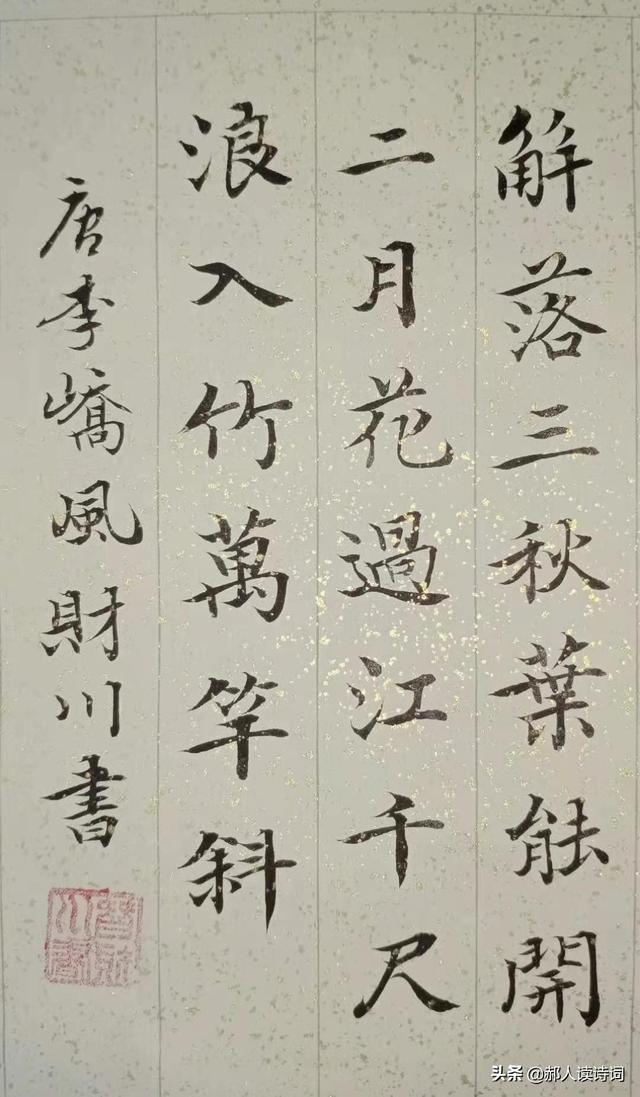 解落三秋葉能開
二月花過江千尺
浪入竹萬竿斜
唐李嶠風財川書
头条 @郝人读诗词